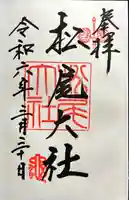 奉拝
松尾大社
令和六年二月二十日